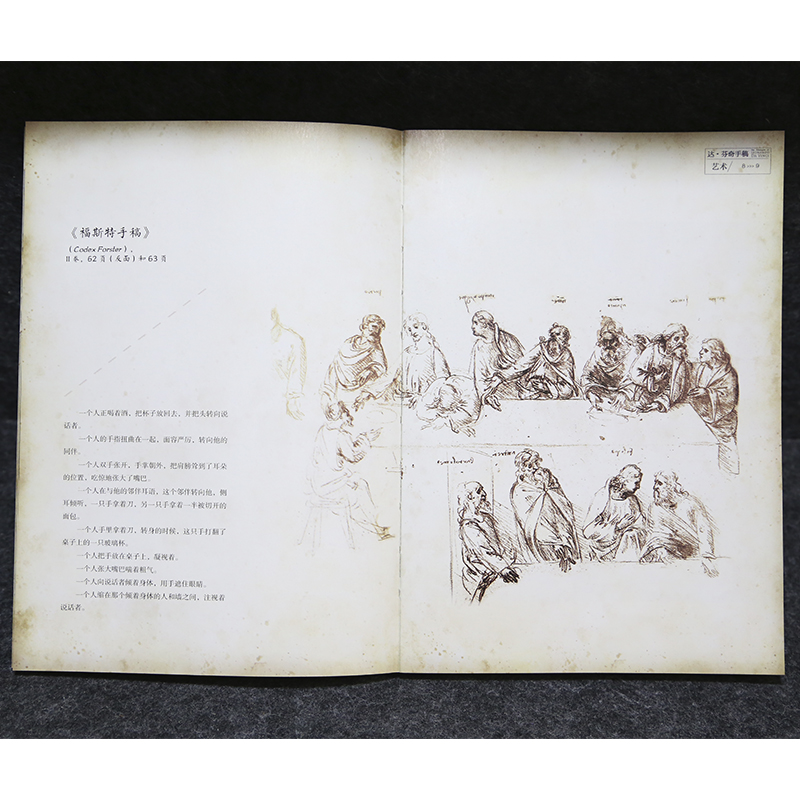 《福斯特手稿》
（Codex Forster），
II 卷、62 页（反面）和 63 页
一个人正喝着酒，把杯子放回去，并把头转向说
话者。
一个人的手指扭曲在一起，面容严厉，转向他的
同伴。
一个人双手张开，手掌朝外，把肩膀耸到了耳朵
的位置，吃惊地张大了嘴巴。
一个人在与他的邻伴耳语，这个邻伴转向他，侧
耳倾听，一只手拿着刀，另一只手拿着一半被切开的
面包。
一个人手里拿着刀，转身的时候，这只手打翻了
桌子上的一只玻璃杯。
一个人把手放在桌子上，凝视着。
一个人张大嘴巴喘着粗气。
一个人向说话者倾着身体，用手遮住眼睛。
一个人缩在那个倾着身体的人和墙之间，注视着
说话者。
达·芬奇手稿
艺术/ 8—9